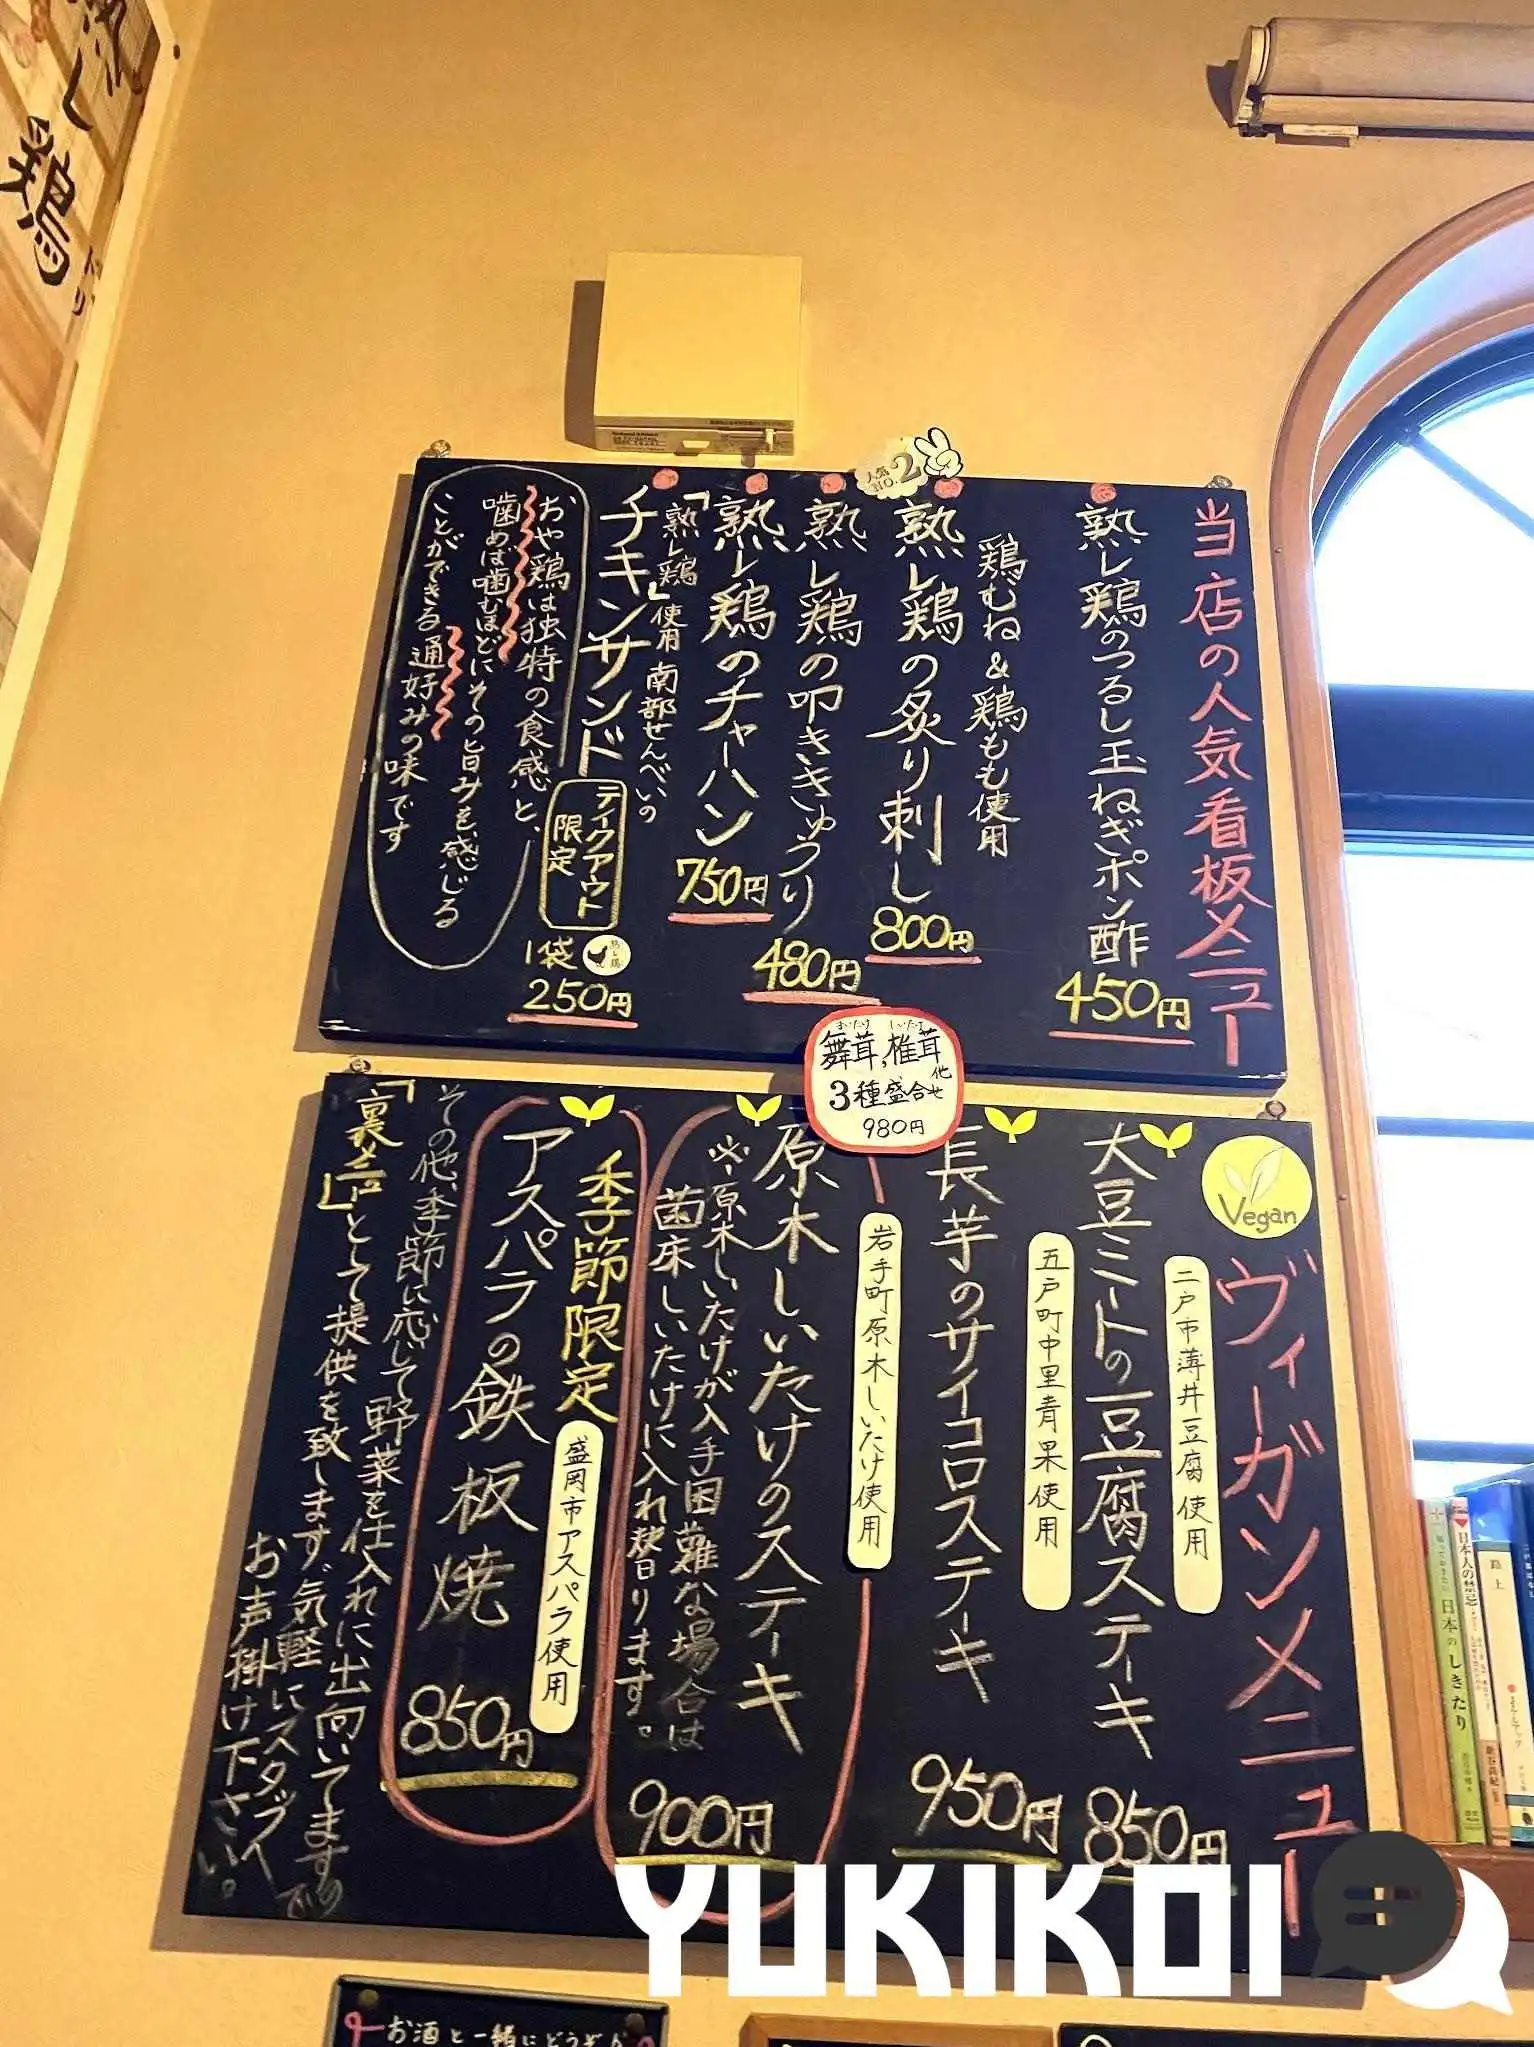 熟し鶏
人気
NO.2
当店の人気看板メニュー
熟し鶏のつるし玉ねぎポン酢
450円
鶏むね&鶏もも使用
熟し鶏の炙り刺し
800円
熟し鶏の叩ききゅうり
480円
熟し鶏のチャーハン
750円
「熟し鶏」使用 南部せんべいの
チキンサンド
テイクアウト
限定
1袋
250円
おや鶏は独特の食感と、
噛めば噛むほどにその旨みを感じる
ことができる通好みの味です
舞茸,椎茸
まいたけ しいたけ
他
3種盛合せ
980円
Vegan
ヴィーガンメニュー
二戸市薄井豆腐使用
大豆ミートの豆腐ステーキ
850円
五戸町中里青果使用
長芋のサイコロステーキ
950円
岩手町原木しいたけ使用
原木しいたけのステーキ
900円
※原木しいたけが入手困難な場合は
菌床しいたけに入れ替ります。
季節限定
盛岡市アスパラ使用
アスパラの鉄板焼
850円
その他、季節に応じて野菜を仕入れに出向いてますので
「裏メニュー」として提供を致します。気軽にスタッフへ
お声掛け下さい。
お酒と一緒にどうぞ
日本のしきたり
日本人の禁忌
路上
YUKIKOI